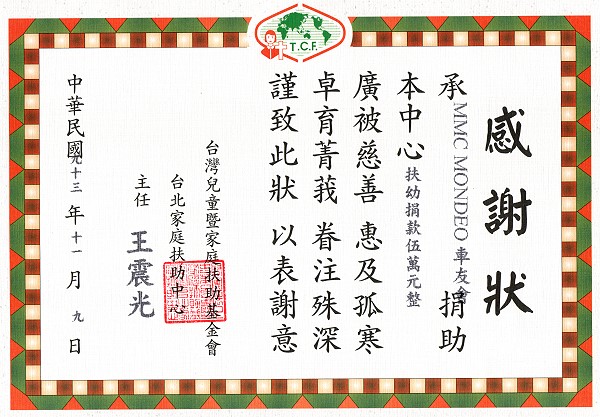 T.C.F.
感謝狀
承 MMC MONDEO 車友會 捐助
本中心扶幼捐款伍萬元整
廣被慈善 惠及孤寒
卓育菁莪 眷注殊深
謹致此狀 以表謝意
台灣兒童暨家庭扶助基金會
台北家庭扶助中心
主任 王震光
中華民國九十三年十一月九日